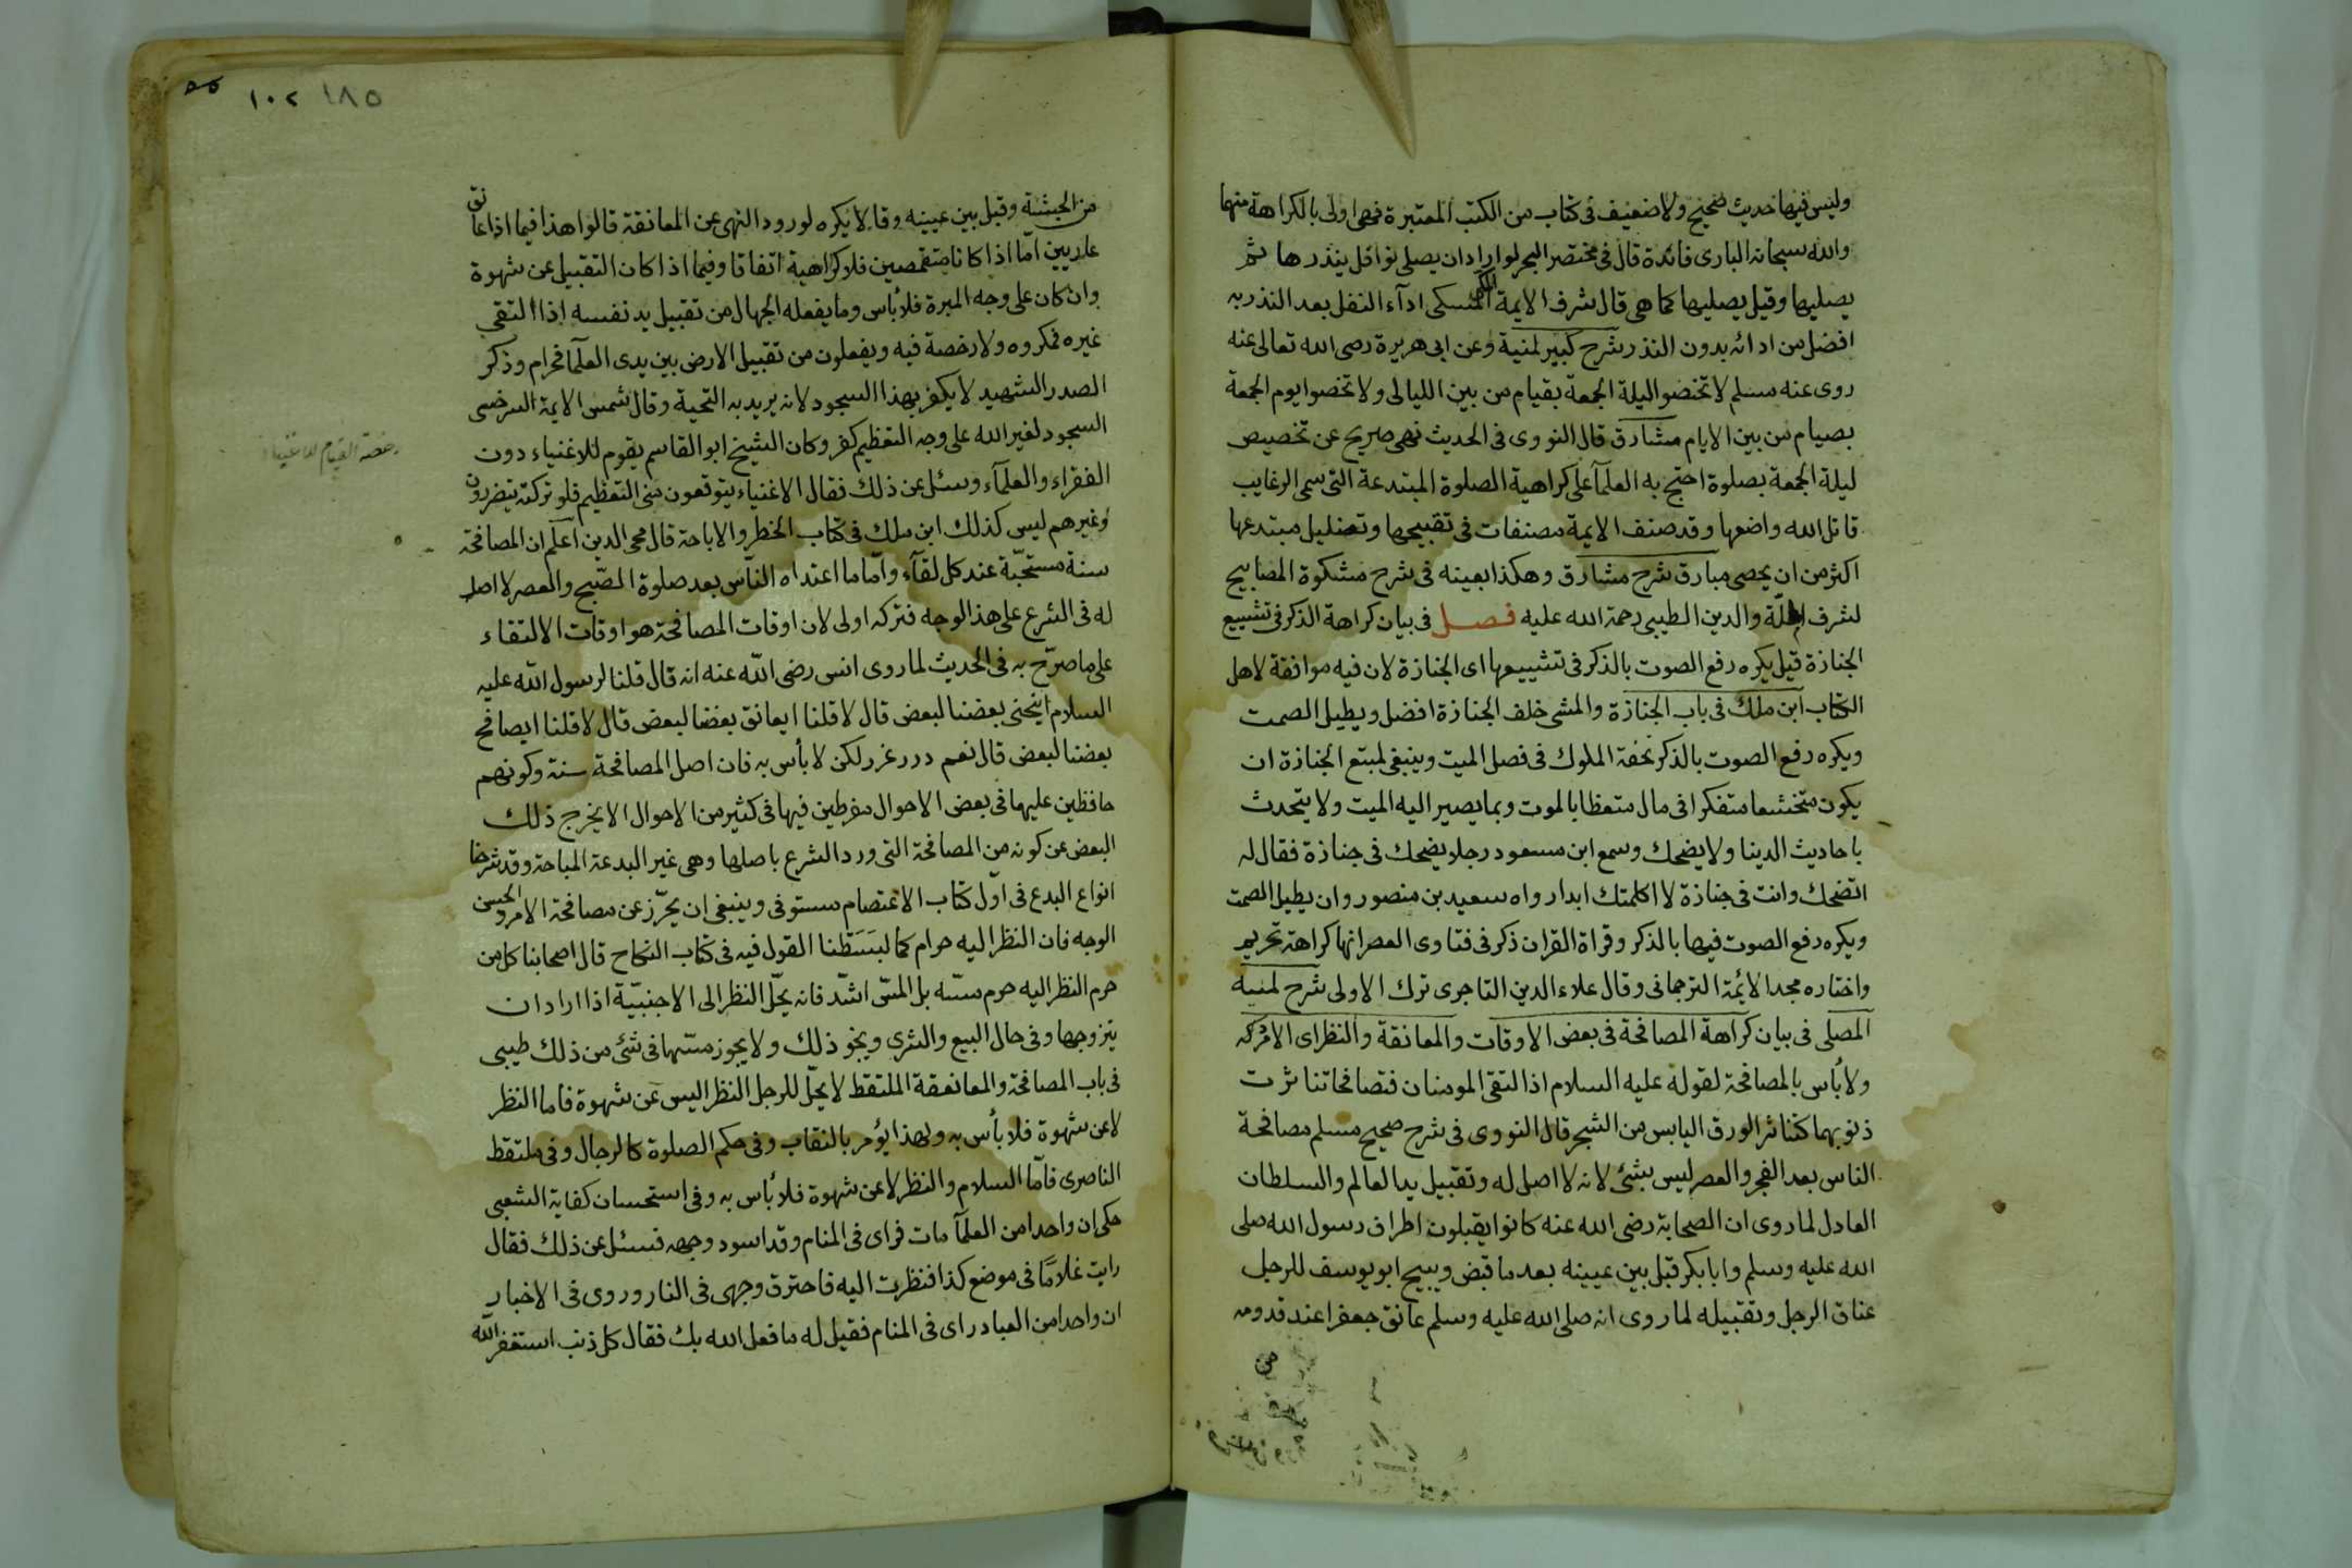 وليس فيها حديث صحيح ولا ضعيف فى كتاب من الكتب المعتبرة فهى اولى بالكراهة منها
والله سبحانه البارى فائدة قال فى مختصر البحر لو اراد ان يصلى نوافل ينذرها ثم
يصليها وقيل يصليها كما هى قال شرف الايمة المسكى ادآء النفل بعد النذر به
افضل من ادائه بدون النذر شرح كبير لمنية وعن ابى هريرة رضى الله تعالى عنه
روى عنه مسلم لا تختصوا ليلة الجمعة بقيام من بين الليالى ولا تخصوا يوم الجمعة
بصيام من بين الايام مشارق قال النووى فى الحديث نهى صريح عن تخصيص
ليلة الجمعة بصلوة احتج به العلمآ على كراهية الصلوة المبتدعة التى سمى الرغايب
قاتل الله واضعها وقد صنف الايمة مصنفات فى تقبيحها وتضليل مبتدعها
اكثر من ان يحصى مبارق شرح مشارق وهكذا بعينه فى شرح مشكوة المصابيح
لشرف الملّة والدين الطيبى رحمة الله عليه فصل فى بيان كراهة الذكر فى تشييع
الجنازة قيل يكره رفع الصوت بالذكر فى تشييعها اى الجنازة لان فيه موافقة لاهل
الكتاب ابن ملك فى باب الجنازة والمشى خلف الجنازة افضل ويطيل الصمت
ويكره رفع الصوت بالذكر تحفة الملوك فى فصل الميت وينبغى لمتبع الجنازة ان
يكون متخشعا متفكرا فى مال متعظا بالموت وبما يصير اليه الميت ولا يتحدث
باحاديث الدينا ولا يضحك وسمع ابن مسعود رجلا يضحك فى جنازة فقال له
اتضحك وانت فى جنازة لا اكلمتك ابدا رواه سعيد بن منصور وان يطيل الصمت
ويكره رفع الصوت فيها بالذكر وقراة القران ذكر فى فتاوى العصر انها كراهة تحريم
واختاره مجد الائمة الترجمانى وقال علاء الدين التاجرى ترك الاولى شرح لمنية
المصلى فى بيان كراهة المصافحة فى بعض الاوقات والمعانقة والنظر اى الامركه
ولا بأس بالمصافحة لقوله عليه السلام اذا التقى المومنان فتصافحا تناثرت
ذنوبهما كتناثر الورق اليابس من الشجر قال النووى فى شرح صحيح مسلم مصافحة
الناس بعد الفجر والعصر ليس بشئ لانه لا اصل له وتقبيل يد العالم والسلطان
العادل لما روى ان الصحابة رضى الله عنه كانوا يقبلون اطراف رسول الله صلى
الله عليه وسلم وابا بكر قبل بين عيينه بعد ما قبض ويبيح ابو يوسف للرجل
عناق الرجل وتقبيله لما روى انه صلى الله عليه وسلم عانق جعفرا عند قدومه
من
١٠٢ ١٨٥
من الحبشة وقبل بين عيينه وقالا يكره لورود النهى عن المعانقة قالوا هذا فيما اذا عانق
عاريين امّا اذا كانا متقمصين فلا كراهية اتفاقا وفيما اذا كان التقبيل عن شهوة
وان كان على وجه المبرة فلا بأس وما يفعله الجهال من تقبيل يد نفسه اذا التقى
غيره فمكروه ولا رخصة فيه ويفعلون من تقبيل الارض بين يدى العلمآ فحرام وذكر
الصدر الشهيد لا يكفر بهذا السجود لانه يريد به التحية وقال شمس الايمة السرخسى
السجود لغير الله على وجه التعظيم كفر وكان الشيخ ابو القاسم يقوم للاغنياء دون
الفقراء والعلمآء وسئل عن ذلك فقال الاغنياء يتوقعون منى التعظيم فلو تركته يتضررون
وغيرهم ليس كذلك ابن ملك فى كتاب الحظر والاباحة قال محى الدين اعلم ان المصافحة
سنة مستحبّة عند كل لقآء وامّا ما اعتداه النآس بعد صلوة الصّبح والعصر لا اصل
له فى الشرع على هذا الوجه فتركه اولى لان اوقات المصافحة هو اوقات الالتقاء
على ما صرّح به فى الحديث لما روى انس رضى الله عنه انه قال قلنا لرسول الله عليه
السلام اينحنى بعضنا لبعض قال لا قلنا ايعانق بعضا لبعض قال لا قلنا ايصافح
بعضنا لبعض قال نعم درر غرر لكن لا بأس به فان اصل المصافحة سنة وكونهم
حافظين عليها فى بعض الاحوال مفرطين فيها فى كثير من الاحوال لا يخرج ذلك
البعض عن كونه من المصافحة التى ورد الشرع باصلها وهى غير البدعة المباحة وقد شرحنا
انواع البدع فى اول كتاب الاعتصام مستوفى وينبغى ان يحرّز عن مصافحة الامرد الحسن
الوجه فان النظر اليه حرام كما لبسَطنا القول فيه فى كتاب النكاح قال اصحابنا كل من
حرم النظر اليه حرم مسّه بل المسّ اشدّ فانه يحلّ النظر الى الاجنبيّة اذا اراد ان
يتزوجها وفى حال البيع والشرى ونحو ذلك ولا يجوز مسّها فى شئ من ذلك طيبى
فى باب المصافحة والمعانعقة الملتقط لا يحلّ للرجل النظر اليس عن شهوة فاما النظر
لا عن شهوة فلا بأس به ولهذا يؤمر بالنقاب وفى حكم الصلوة كالرجال وفى ملتقط
الناصرى فامّا السلام والنظر لا عن شهوة فلا بأس به وفى استحسان كفاية الشعبى
حكى ان واحدا من العلمآ مات فراى فى المنام وقد اسود وجهه فسئل عن ذلك فقال
رايت غلامًا فى موضع كذا فنظرت اليه فاحترق وجهى فى النار وروى فى الاخبار
ان واحدا من العباد راى فى المنام فقيل له ما فعل الله بك فقال كل ذنب استغفر الله
رخصة القيام للاغنياء